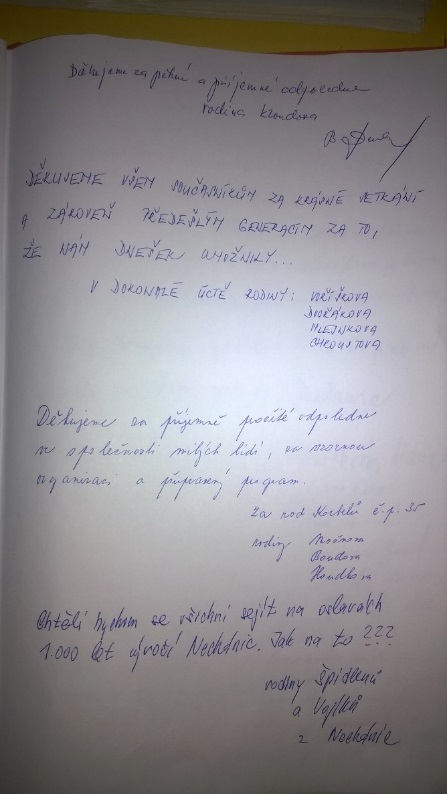 Děkujeme za pěkné a příjemné odpoledne
rodina
DĚKUJEME VŠEM SOUČASNÍKŮM ZA KRÁSNÉ SETKÁNÍ
A ZÁROVEŇ PŘEDEŠLÝM GENERACÍM ZA TO,
ŽE NÁM DNEŠEK UMOŽNILY...
V DOKONALÉ ÚCTĚ RODINY: VOŘÍŠKOVA
DVOŘÁKOVA
MLEJNKOVA
CHROUSTOVA
Děkujeme za příjemně prožité odpoledne
ve společnosti milých lidí, za vzornou
organizaci a připravený program.
Za rod č.p. 35
rodiny
Chtěli bychom se všichni sejít na oslavách
1.000 let výročí Nechanic. Jak na to ???
rodiny Špidlenů
a Vojtků
z Nechanic